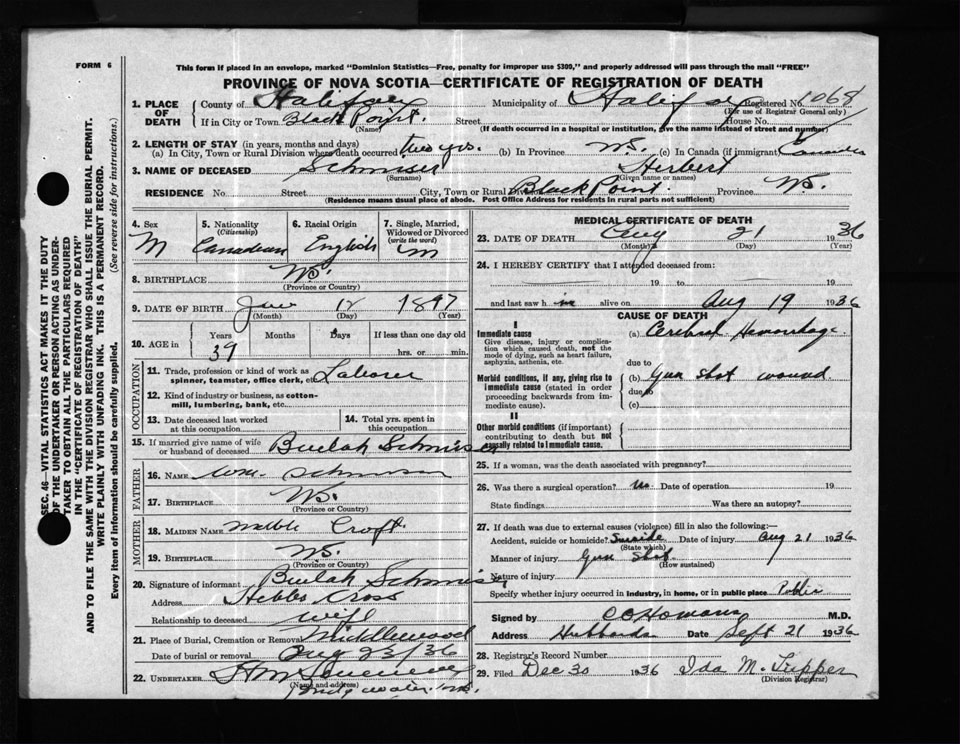 FORM 6
This form if placed in an envelope, marked "Dominion Statistics—Free, penalty for improper use $300," and properly addressed will pass through the mail "FREE"
PROVINCE OF NOVA SCOTIA—CERTIFICATE OF REGISTRATION OF DEATH
SEC. 46—VITAL STATISTICS ACT MAKES IT THE DUTY
OF THE UNDERTAKER OR PERSON ACTING AS UNDER-
TAKER TO OBTAIN ALL THE PARTICULARS REQUIRED
IN THE "CERTIFICATE OF REGISTRATION OF DEATH"
AND TO FILE THE SAME WITH THE DIVISION REGISTRAR WHO SHALL ISSUE THE BURIAL PERMIT.
WRITE PLAINLY WITH UNFADING INK. THIS IS A PERMANENT RECORD.
Every item of Information should be carefully supplied. (See reverse side for Instructions.)
1. PLACE OF DEATH
County of Halifax Municipality of Halifax Registered No. 1068
(For use of Registrar General only)
If in City or Town Black Point. Street House No.
(Name) (If death occurred in a hospital or institution, give the name instead of street and number)
2. LENGTH OF STAY (in years, months and days)
(a) In City, Town or Rural Division where death occurred two yrs. (b) In Province N.S. (c) In Canada (if immigrant) Canada
3. NAME OF DECEASED Schmiser Herbert
(Surname) (Given name or names)
RESIDENCE No Street City, Town or Rural Division Black Point. Province N.S.
(Residence means usual place of abode. Post Office Address for residents in rural parts not sufficient)
4. Sex M
5. Nationality (Citizenship) Canadian
6. Racial Origin English
7. Single, Married, Widowed or Divorced (write the word) M
8. BIRTHPLACE N.S.
(Province or Country)
9. DATE OF BIRTH 12 1897
(Month) (Day) (Year)
10. AGE in Years 39 Months Days If less than one day old
hrs. or min.
OCCUPATION
11. Trade, profession or kind of work as spinner, teamster, office clerk, etc. Laborer
12. Kind of industry or business, as cotton-mill, lumbering, bank, etc.
13. Date deceased last worked at this occupation
14. Total yrs. spent in this occupation
15. If married give name of wife or husband of deceased Beulah Schmiser
FATHER
16. NAME Wm. Schmiser
17. BIRTHPLACE N.S.
(Province or Country)
MOTHER
18. MAIDEN NAME Croft
19. BIRTHPLACE N.S.
(Province or Country)
20. Signature of informant Beulah Schmiser
Address Hebbs Cross
Relationship to deceased wife
21. Place of Burial, Cremation or Removal Middlewood
Date of burial or removal Aug 23/36
22. UNDERTAKER
(Name and address)
Bridgewater N.S.
MEDICAL CERTIFICATE OF DEATH
23. DATE OF DEATH Aug 21 1936
(Month) (Day) (Year)
24. I HEREBY CERTIFY that I attended deceased from:
19 to 19
and last saw him alive on Aug 19 1936
CAUSE OF DEATH
I
Immediate cause
Give disease, injury or complication which caused death, not the mode of dying, such as heart failure, asphyxia, asthenia, etc.
(a) Cerebral Hemorrhage.
due to
Morbid conditions, if any, giving rise to immediate cause (stated in order proceeding backwards from immediate cause).
(b) Gun shot wound
due to
(c)
II
Other morbid conditions (if important) contributing to death but not causally related to immediate cause.
25. If a woman, was the death associated with pregnancy?
26. Was there a surgical operation? no Date of operation 19
State findings Was there an autopsy?
27. If death was due to external causes (violence) fill in also the following:—
Accident, suicide or homicide? Suicide Date of injury Aug 21 1936
(State which)
Manner of injury Gun Shot.
(How sustained)
Nature of injury
Specify whether injury occurred in industry, in home, or in public place Public
Signed by M.D.
Address Hubbards Date Sept 21 1936
28. Registrar's Record Number
29. Filed Dec 30 1936 Ida M. Tupper
(Division Registrar)